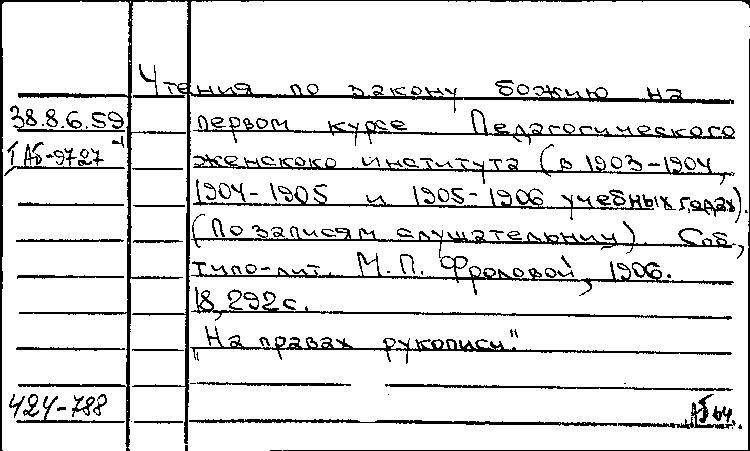 Чтения по закону божию на
38.8.6.59 первом курсе Педагогического
ТАб-9727 женского института (в 1903-1904,
1904-1905 и 1905-1906 учебных годах).
(По записям слушательниц). Спб.,
типо-лит. М.П. Фроловой, 1906.
8, 292 с.
"На правах рукописи."
424-788 Аб 64.